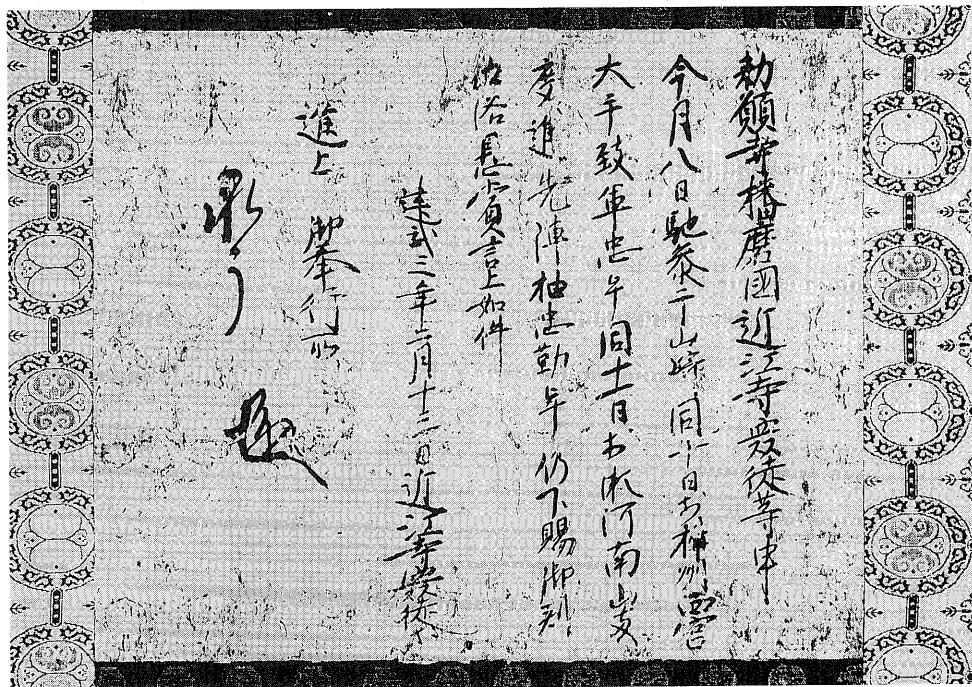 勅願寺播磨國近江寺衆徒等申
今月八日馳参于山崎同十日於摂州
大手致軍忠畢同十一日於瀬河南山
度進先陣抽忠勤畢仍下賜御判
浴恩賞言上如件
建武三年二月十二日近江寺衆徒等
進上 御奉行所
承了